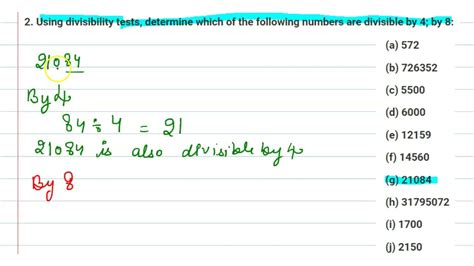 2. Using divisibility tests, determine which of the following numbers are divisible by 4; by 8:
(a) 572
21084
(b) 726352
By 4
(c) 5500
84 ÷ 4 = 21
(d) 6000
21084 is also divisible by 4
(e) 12159
(f) 14560
By 8
(g) 21084
(h) 31795072
(i) 1700
(j) 2150